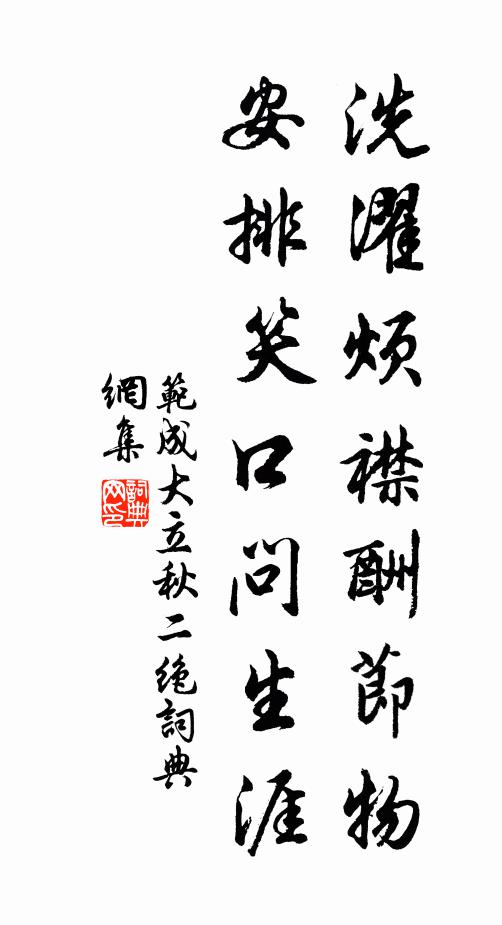 洗濯煩襟酬節物
安排笑口問生涯
範成大立秋二絶詞典
網集
詞典
网印